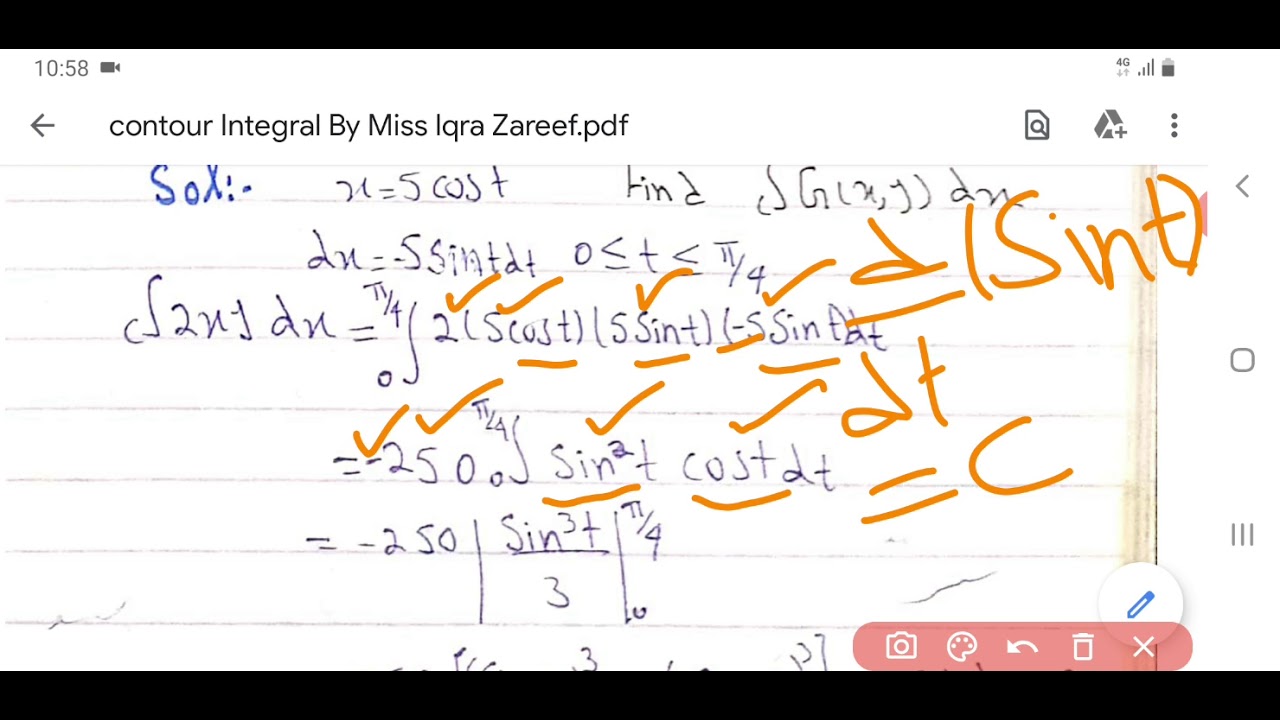 10:58
4G
contour Integral By Miss Iqra Zareef.pdf
Sol:- x=5cost Find ∫G(x,y) dx
dx=-5Sintdt 0≤t≤π/4
d(Sint)
∫2xy dx = π/4 0∫ 2(5cost)(5Sint)(-5Sint)dt
dt
= -250 π/4 0∫ Sin²t cost dt
= C
= -250 | Sin³t / 3 | π/4 0